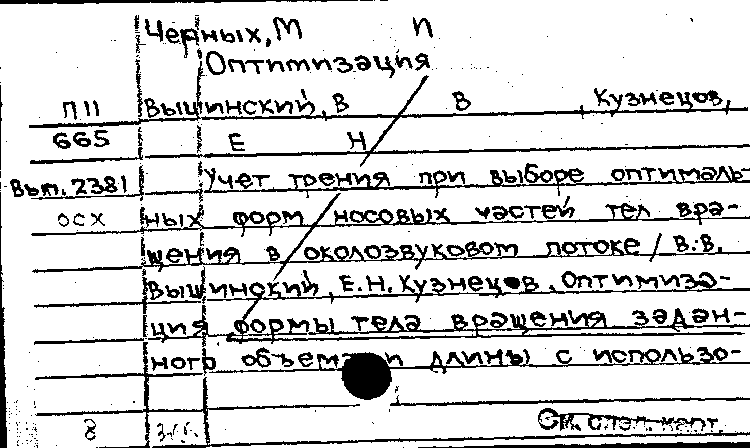 Черных, М П
Оптимизация
П11 Вышинский, В В , Кузнецов,
665 Е Н
Вып. 2381 Учет трения при выборе оптималь-
осх ных форм носовых частей тел вра-
щения в околозвуковом потоке / В.В.
Вышинский, Е.Н. Кузнецов. Оптимиза-
ция формы тела вращения задан-
ного объема и длины с использо-
8 См. след. карт.